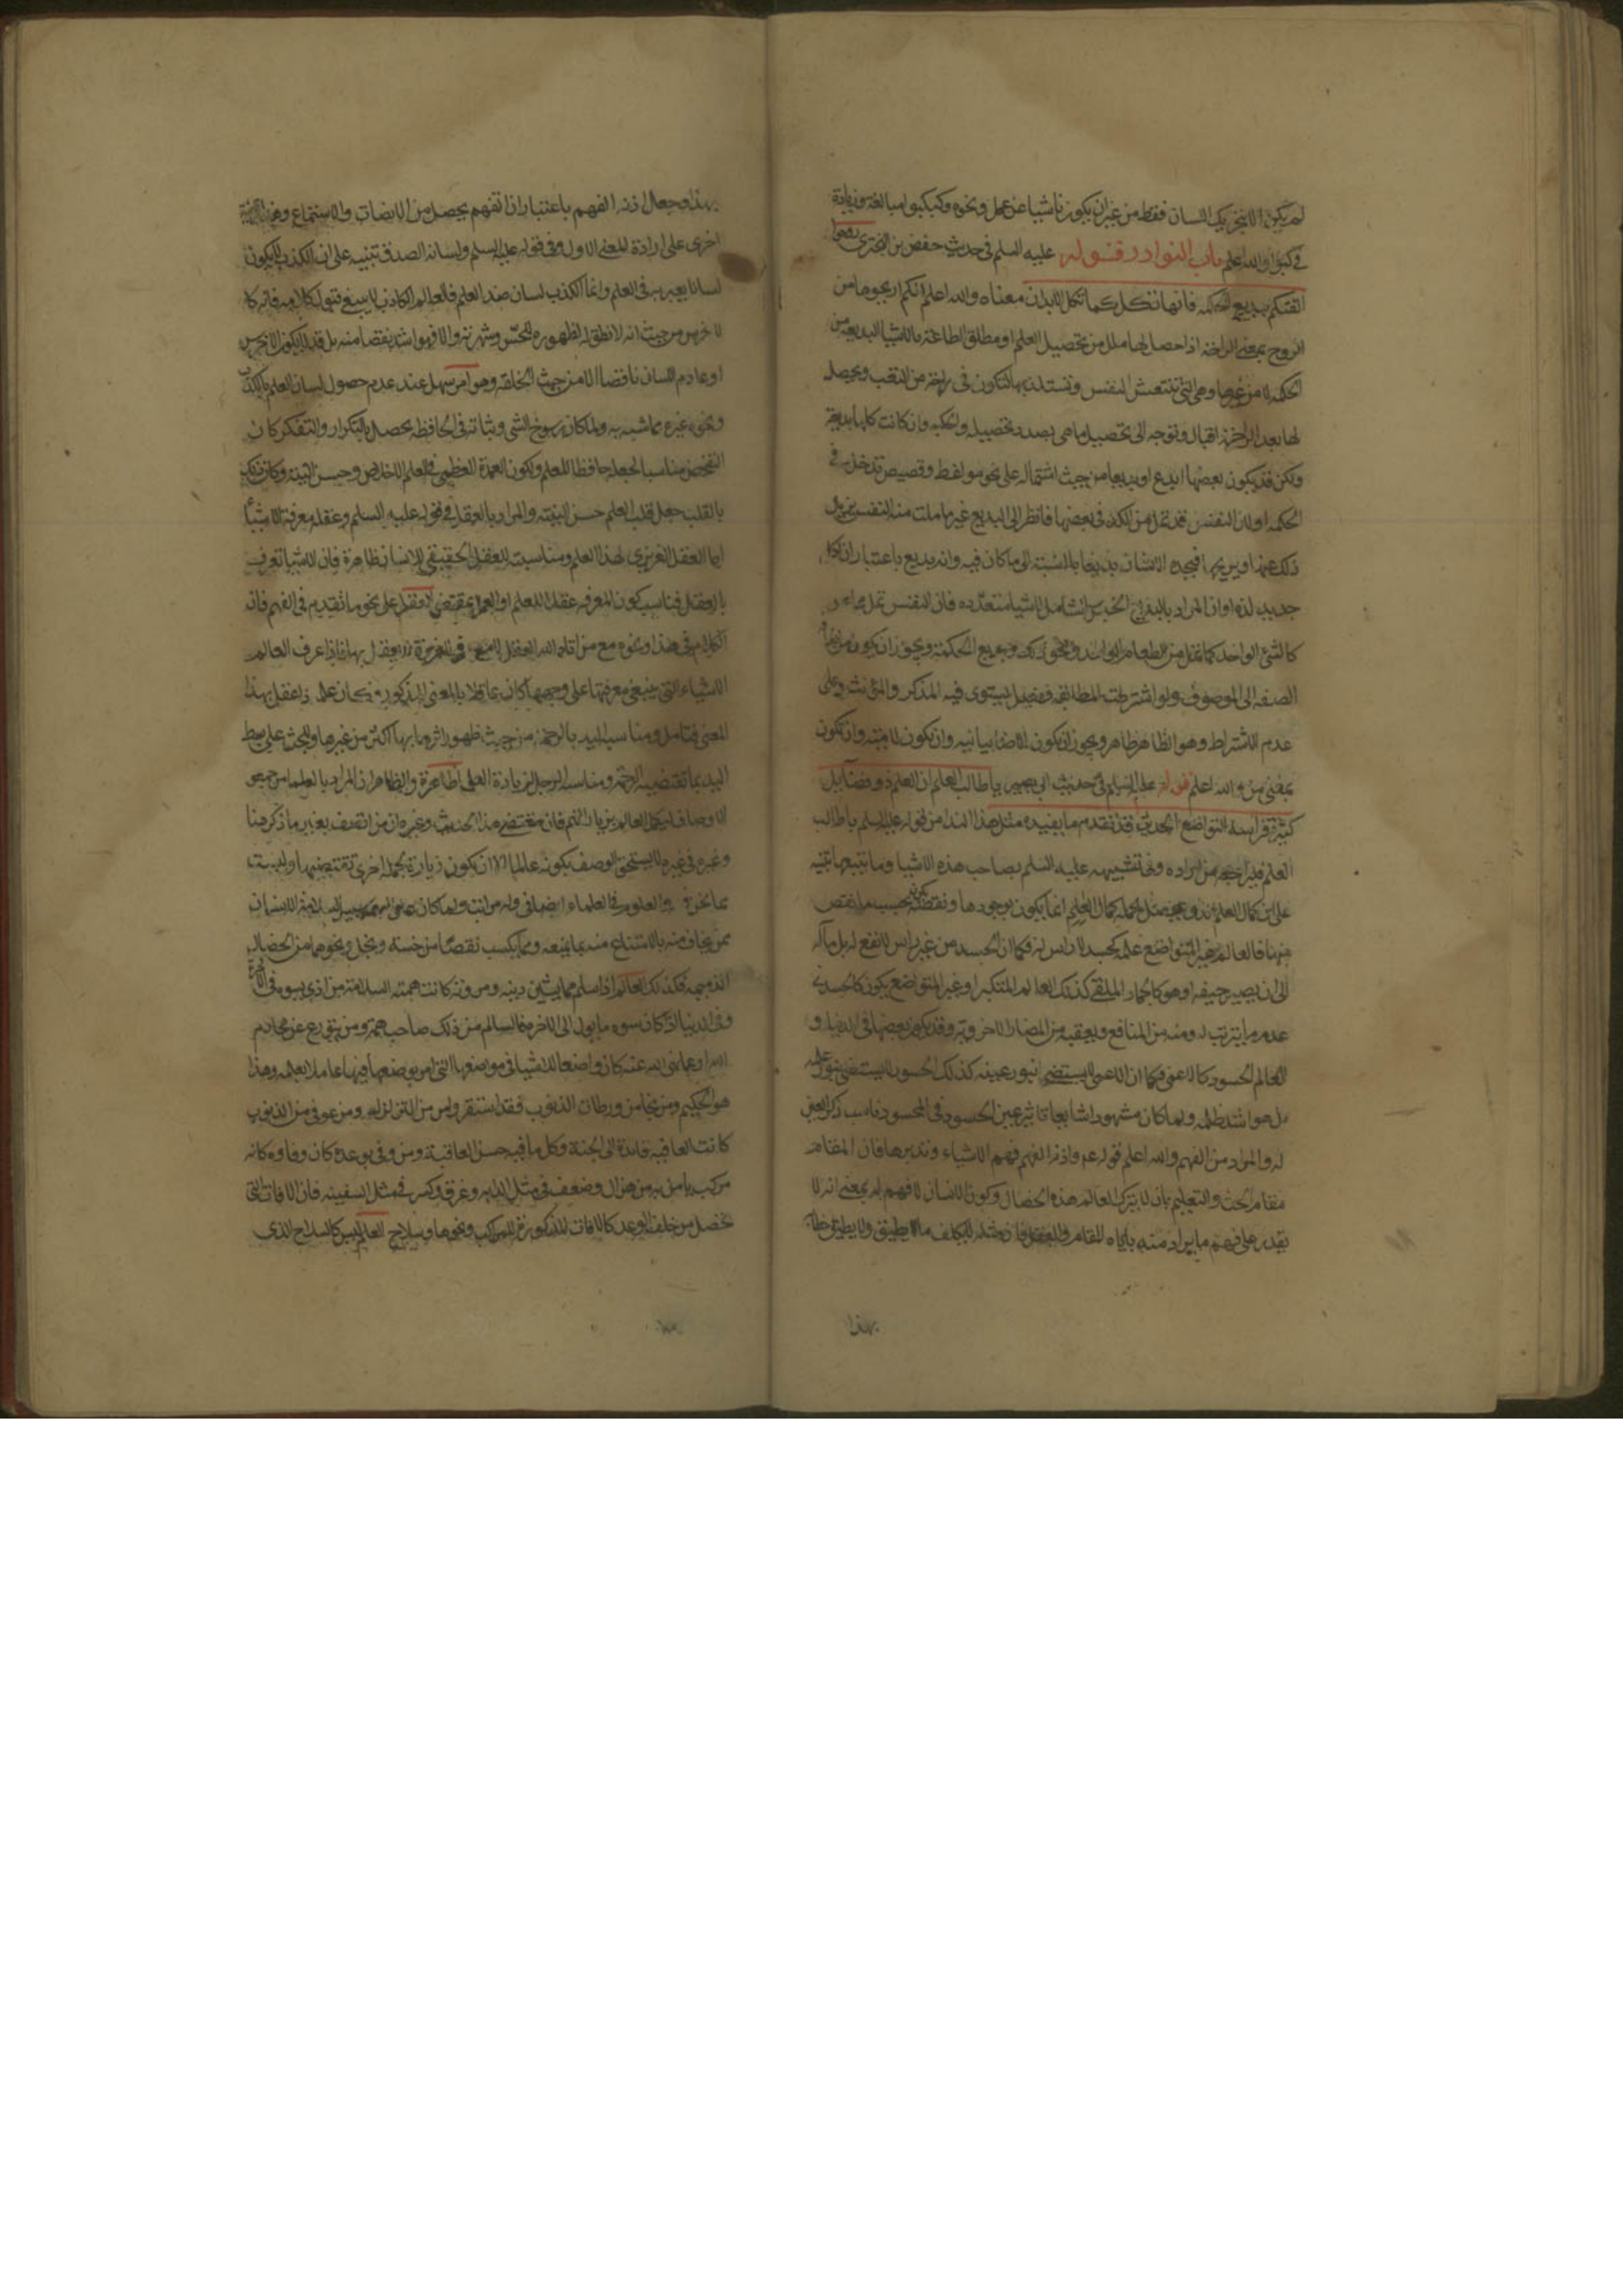 لم يكن الا بتحريك اللسان فقط من غير ان يكون ناشيا عن عمل ونحوه وكبكبوا مبالغة وزيادة
في كبوا والله اعلم باب النوادر قوله عليه السلم في حديث حفص بن البختري روحوا
انفسكم ببديع الحكمة فانها تكل كما تكل الابدان معناه والله اعلم انكم اريحوها من
الروح بمعنى الراحة اذا حصل لها ملل من تحصيل العلم او مطلق الطاعة بالاشيا البديعة من
الحكمة لا من غيرها وهي التي تنتعش النفس وتستلذ بها لتكون في راحة من التعب ويحصل
لها بعد الراحة اقبال وتوجه الى تحصيل ما هي بصدد تحصيله والحكمة وان كانت كلها بديعة
ولكن قد يكون بعضها ابدع او بديعا من حيث اشتماله على نحو مواعظ وقصص تدخل في
الحكمة او لان النفس قد تمل من الكد في بعضها فالنظر الى البديع غير ما ملت منه النفس يزيل
ذلك عنها ويريحها فيجده الانسان بديعا بالنسبة الى ما كان فيه وانه بديع باعتبار ان لكل
جديد لذة او ان المراد بالبديع الجنس الشامل لاشيا متعددة فان النفس تمل
كالشئ الواحد كما تمل من الطعام الواحد ونحو ذلك وبديع الحكمة ويجوز ان يكون من اضافة
الصفة الى الموصوف ولو اشترطت المطابقة ففعيل يستوي فيه المذكر والمؤنث وعلى
عدم الاشتراط وهو الظاهر ظاهر ويجوز ان تكون الاضافة بيانية وان تكون لامية وان تكون
بمعنى من والله اعلم قوله عليه السلام في حديث ابي بصير يا طالب العلم ان العلم ذو فضائل
كثيرة فراسه التواضع الحديث قد تقدم ما يفيده مثل هذا الندا من قوله عليه السلم يا طالب
العلم فليراجعه من اراده وفي تشبيهه عليه السلم بصاحب هذه الاشيا وما يتبعها تنبيه
على ان كمال العلم انما يكون بوجودها ونقصه بحسب ما ينقص
منها فالعالم غير المتواضع علمه كجسد لا راس له فكما ان الجسد من غير راس لا نفع له بل مآله
الى ان يصير جيفة او هو كالجماد الملقى كذلك العالم المتكبر او غير المتواضع يكون كالجسد في
عدم ما يترتب له ومنه من المنافع ويعقبه من المضار الاخروية وقد يكون بعضها في الدنيا و
العالم الحسود كالاعمى فكما ان الاعمى لا يستضئ بنور عينه كذلك الحسود لا يستضئ بنور علمه
بل هو اشد ظلمة ولما كان مشهودا شايعا تاثير عين الحسود في المحسود ناسب ذكر العين
له والمراد من الفهم والله اعلم قوله عم واذنه الفهم فهم الاشياء وتدبرها فان المقام
مقام الحث والتعليم بان لا يترك العالم هذه الخصال وكون الانسان لا فهم له بمعنى انه لا
يقدر على فهم ما يراد منه ياباه المقام والعقل فان مثله لا يكلف ما لا يطيق ولا يطيق خطاب
بهذا
بهذا وجعل اذنه الفهم باعتبار ان الفهم يحصل من الانصات والاستماع وهذا قرينة
اخرى على ارادة المعنى الاول وفي قوله عليه السلم ولسانه الصدق تنبيه على ان الكذب لا يكون
لسانا يعبر به في العلم وانما الكذب لسان ضد العلم فالعالم الكاذب لا ينبغي قبول كلامه فانه كا
لاخرس من حيث انه لا نطق له لظهوره للحس وشهرته والا فهو اشد نقصا منه بل قد لا يكون الاخرس
او عادم اللسان ناقصا الا من جهة الخلقة وهو امر سهل عند عدم حصول لسان العلم بالكذب
ونحوه غيره مما شبه به ولما كان رسوخ الشئ وثباته في الحافظة يحصل بالتكرار والتفكر كان
التفحص مناسبا لجعله حافظا للعلم ولكون العمدة العظمى في العلم الاخلاص وحسن النية وكان ذلك
بالقلب جعل قلب العلم حسن النية والمراد بالعقل في قوله عليه السلم وعقله معرفة الاشيأ
اما العقل الغريزي لهذا العلم ومناسبته للعقل الحقيقي للانسان ظاهرة فان الاشيا تعرف
بالعقل فناسب كون المعرفة عقلا للعلم او العمل بمقتضى العقل على نحو ما تقدم في الفهم فان
الكلام في هذا ونحوه مع من اقامه الله العقل فاذا عرف العالم
الاشياء التي ينبغي معرفتها على وجهها كان عاقلا بالمعنى المذكور وكان علمه ذا عقل بهذا
المعنى فتامل ومناسبة اليد بالرحمة من حيث ظهور اثرها بها اكثر من غيرها والحث على بسط
اليد بما تقتضيه الرحمة ومناسبة الرجل لزيارة العلما ظاهرة والظاهر ان المراد بالعلما من جمعوا
الاوصاف ليكمل العالم بزيارتهم فان مقتضى هذا الحديث وغيره ان من اتصف بغير ما ذكر هنا
وغيره في غيره لا يستحق الوصف بكونه عالما الا ان تكون زيارته لجهة اخرى تقتضيها وليست
مما نحن فيه والعلو في العلماء اضافي وله مراتب ولما كان
ممن يخاف منه بالامتناع منه بما يمنعه ومما يكسب نقصا من خسة وبخل ونحوهما من الخصال
الذميمة فكذلك العالم اذا سلم مما يشين دينه ومروته كانت همته السلامة من اذى يسوه في الاخرة
وفي الدنيا اذا كان سوه ما يول الى الاخرة فالسالم من ذلك صاحب همة ومن يتورع عن محارم
الله او عما نهى الله عنه كان واضعا للاشيا في مواضعها التي امر بوضعها فيها عاملا بعلمه وهذا
هو الحكيم ومن نجا من ورطات الذنوب فقد استقر وامن من التزلزل ومن عوفي من الذنوب
كانت العافية قائدة الى الجنة وكل ما فيه حسن العاقبة ومن وفى بوعده كان وفاوه كانه
مركب يامن به من هزال وضعف في مثل الدابة وغرق وكسر في مثل السفينة فان الافات التي
تحصل من خلف الوعد كالافات المذكورة في المراكب ونحوها وسلاح العالم ليس كالسلاح الذي